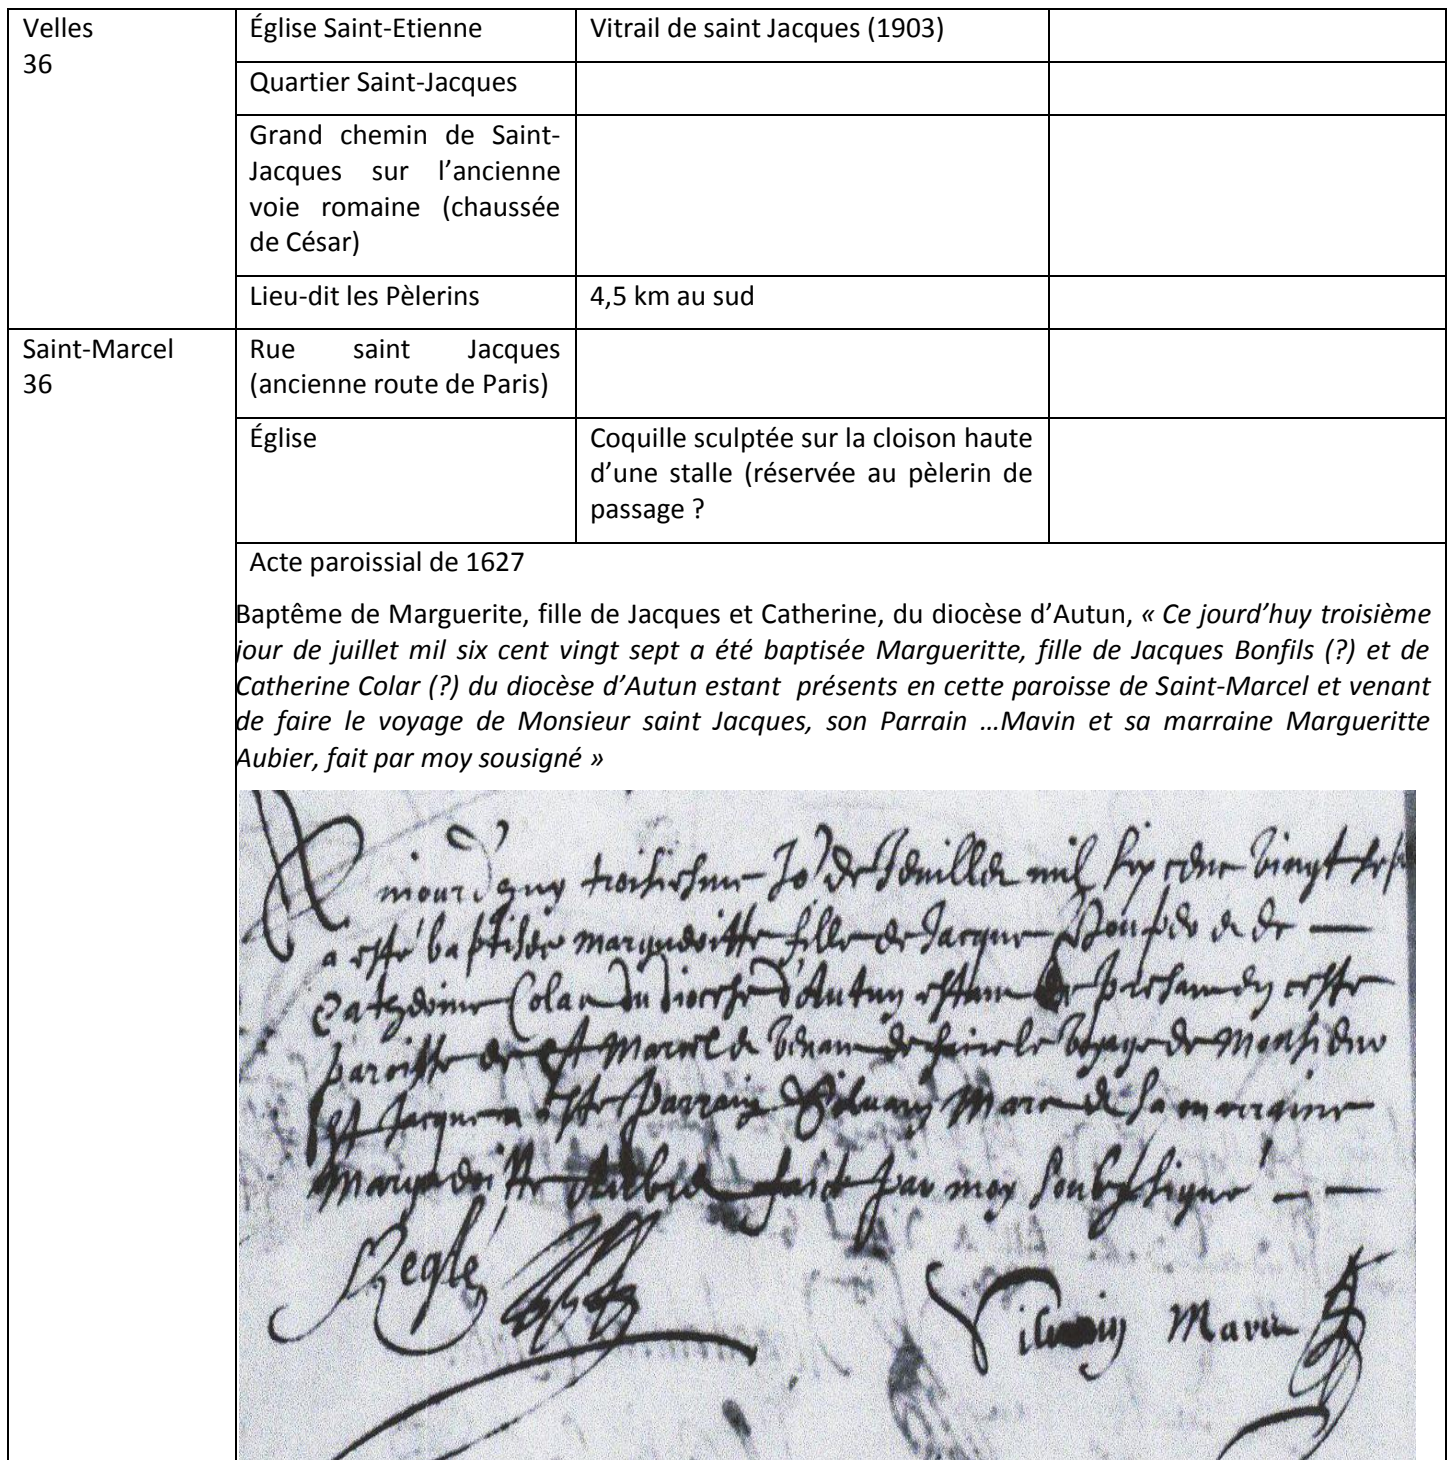 Velles
36
Église Saint-Etienne
Vitrail de saint Jacques (1903)
Quartier Saint-Jacques
Grand chemin de Saint-
Jacques sur l’ancienne
voie romaine (chaussée
de César)
Lieu-dit les Pèlerins
4,5 km au sud
Saint-Marcel
36
Rue saint Jacques
(ancienne route de Paris)
Église
Coquille sculptée sur la cloison haute
d’une stalle (réservée au pèlerin de
passage ?
Acte paroissial de 1627
Baptême de Marguerite, fille de Jacques et Catherine, du diocèse d’Autun, « Ce jourd’huy troisième
jour de juillet mil six cent vingt sept a été baptisée Margueritte, fille de Jacques Bonfils (?) et de
Catherine Colar (?) du diocèse d’Autun estant présents en cette paroisse de Saint-Marcel et venant
de faire le voyage de Monsieur saint Jacques, son Parrain …Mavin et sa marraine Margueritte
Aubier, fait par moy sousigné »
mil six cens vingt
a esté baptisée margueritte fille de Jacque de
Catherine Colar du diocese d'Autun ceste
paroisse de st Marcel de faire le voyage de Monsieur
st Jacque parrain sa marraine
Margueritte faict par moy soubzsigné
Reglé
Mavin